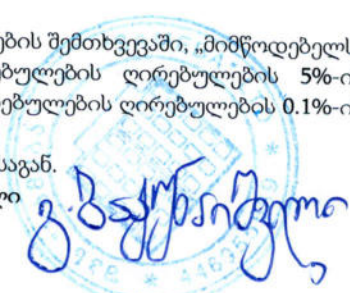 ების შემთხვევაში, „მიმწოდებელს
ებულების ღირებულების 5%-ი
ებულების ღირებულების 0.1%-ი
საგან.
ლი